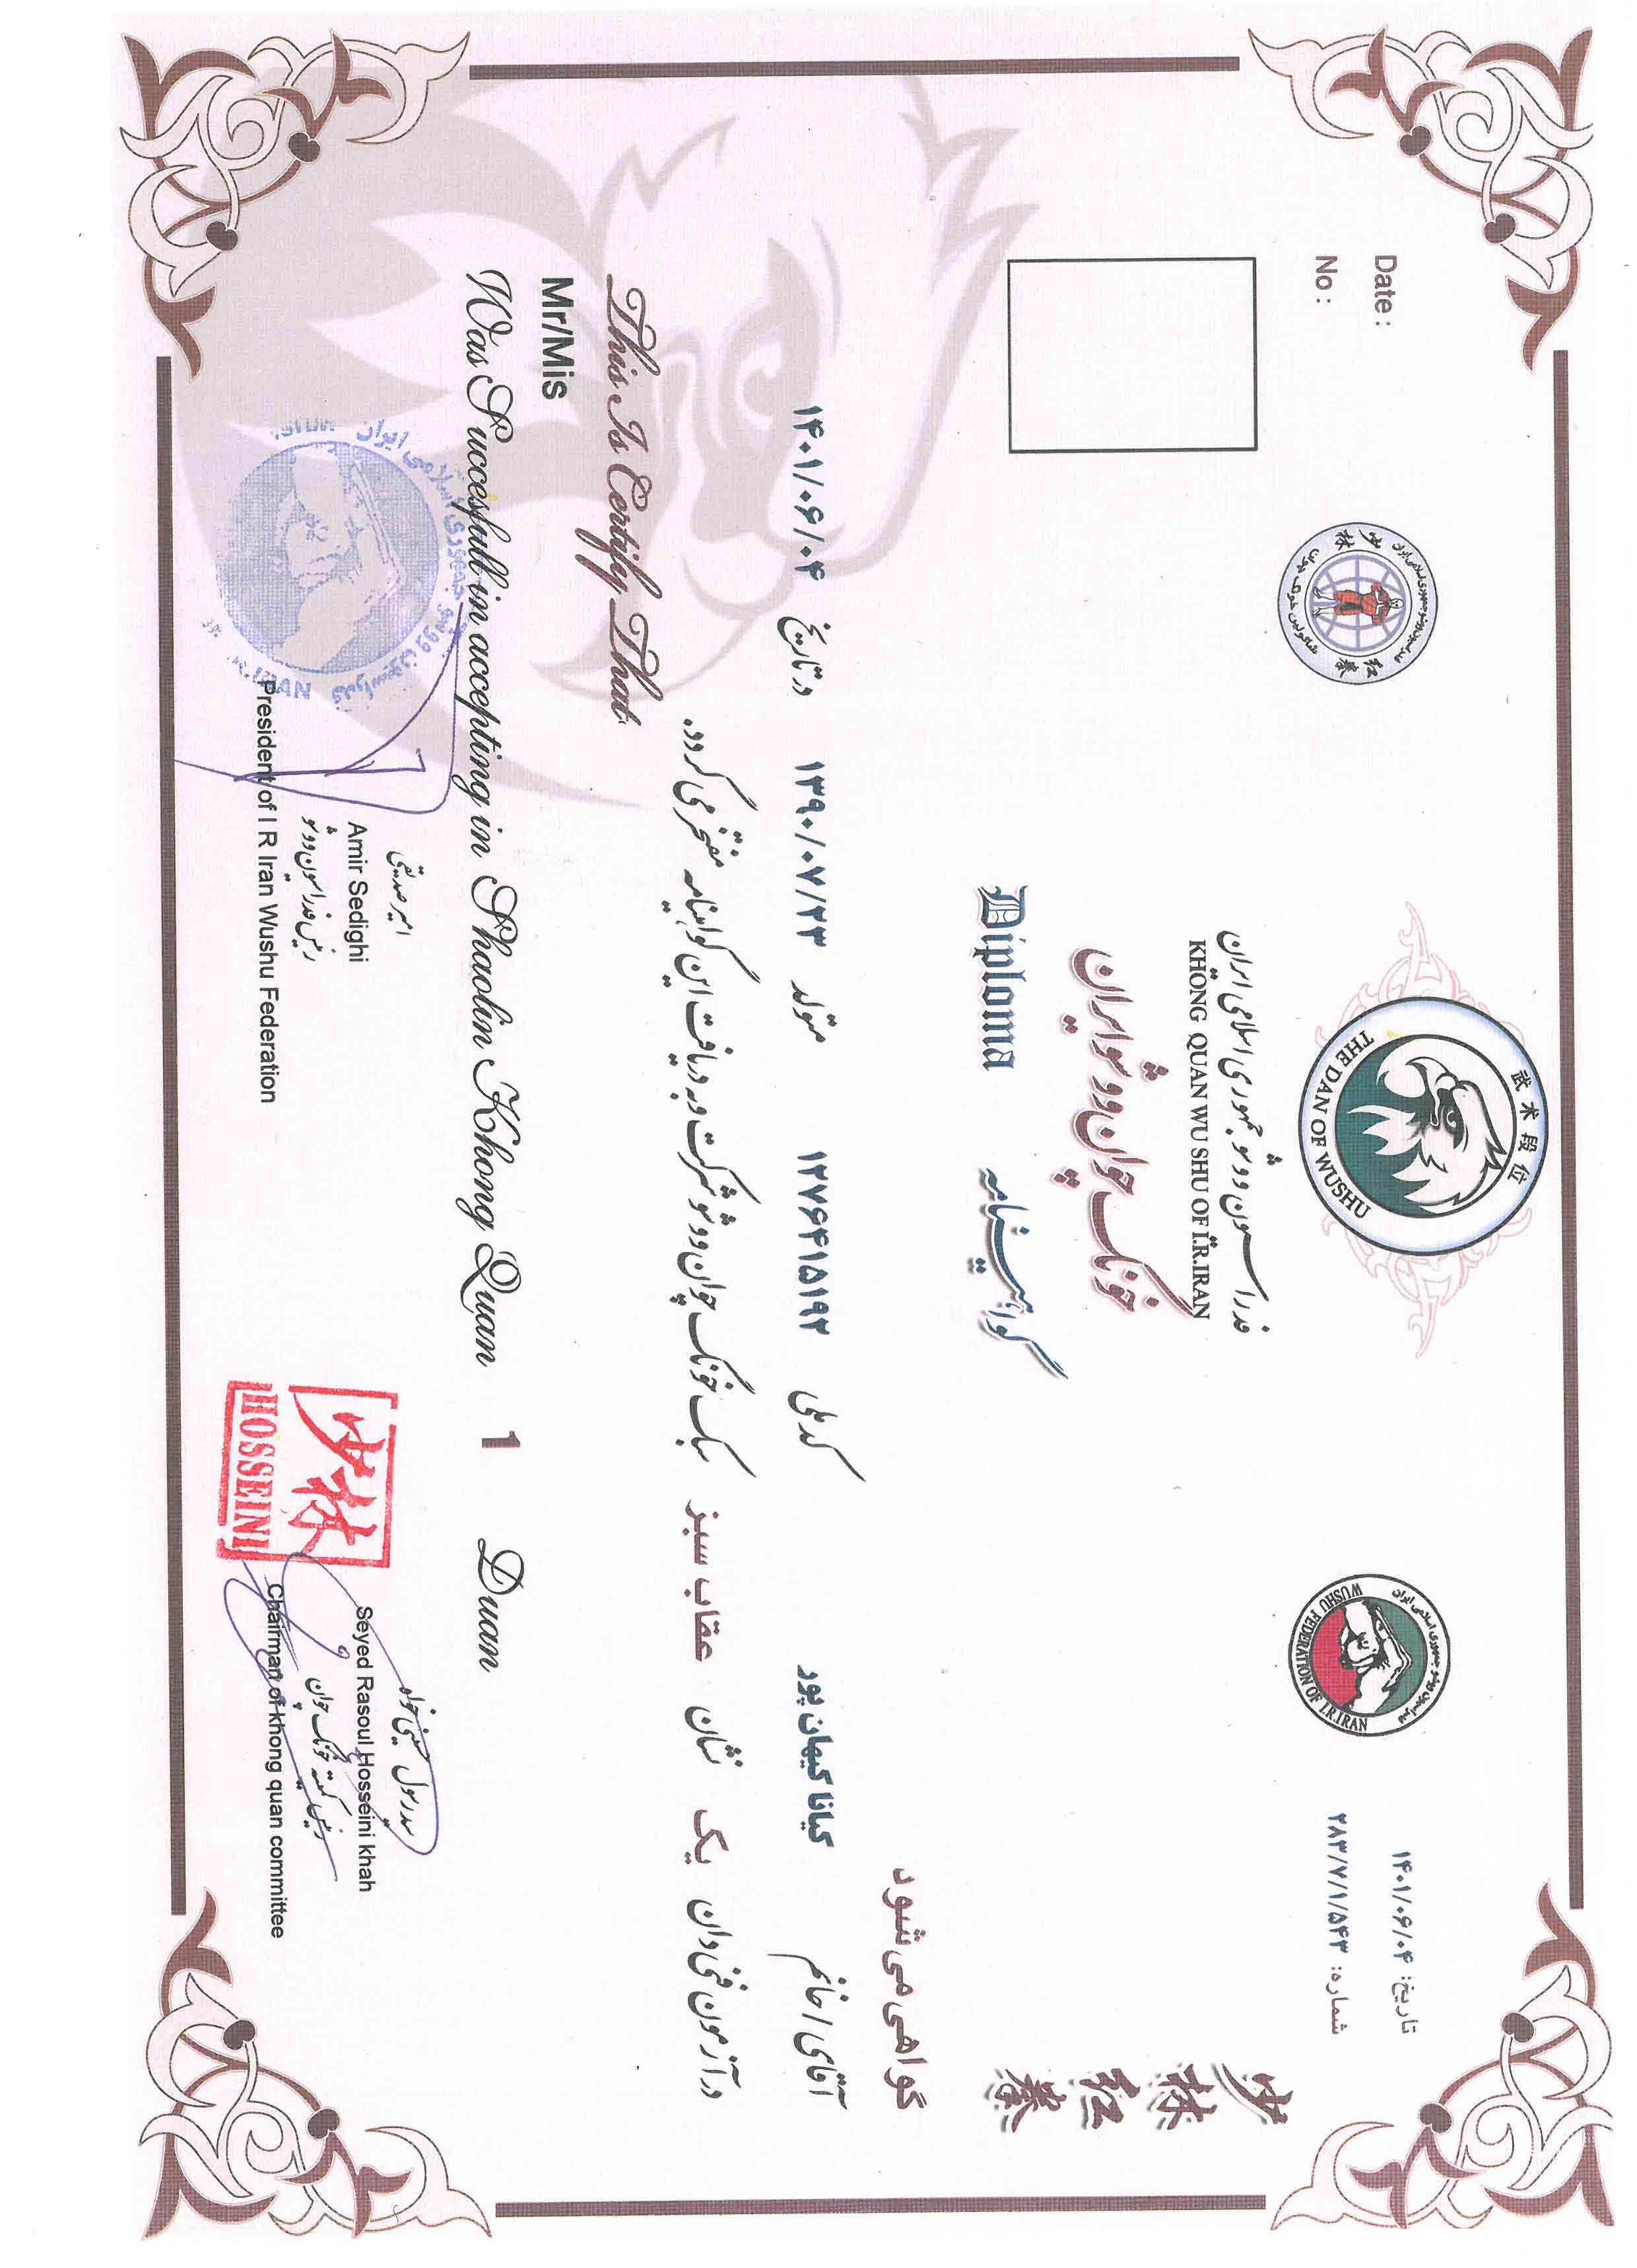 武术段位
THE DAN OF WUSHU
فدراسیون ووشو جمهوری اسلامی ایران
KHONG QUAN WU SHU OF I.R.IRAN
خونگ چوان ووشو ایران
گواهینامه
Diploma
Date :
No :
تاریخ: ۱۴۰۱/۰۶/۰۴
شماره: ۲۸۳/۷/۱/۵۴۳
少林红拳
فدراسیون ووشو جمهوری اسلامی ایران
WUSHU FEDERATION OF I.R.IRAN
少林红拳
گواهی می شود
آقای / خانم کیانا کیهان پور کد ملی ۱۲۷۶۴۱۵۱۹۲ متولد ۱۳۹۰/۰۷/۲۳ در تاریخ ۱۴۰۱/۰۶/۰۴
در آزمون فنی دان یک نشان عقاب سبز سبک خونگ چوان ووشو شرکت و به دریافت این گواهینامه مفتخر می گردد.
This Is Certify That
Mr/Mis
Was Succesfull in accepting in Shaolin Khong Quan 1 Duan
امیر صدیقی
Amir Sedighi
رئیس فدراسیون ووشو
President of I R Iran Wushu Federation
سید رسول حسینی خواه
Seyed Rasoul Hosseini khah
رئیس کمیته خونگ چوان
Chairman of khong quan committee
少林
HOSSEINI